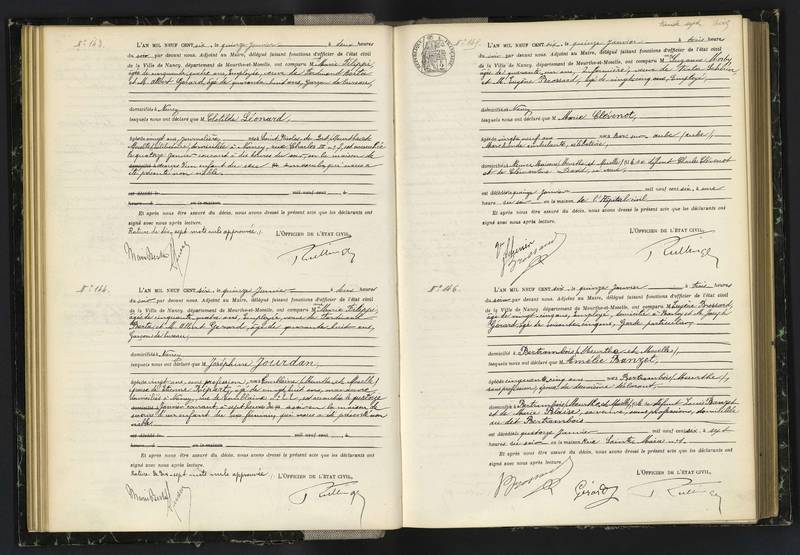 N° 143.
L'AN MIL NEUF CENT six, le quinze janvier à deux heures
du soir, par devant nous, Adjoint au Maire, délégué faisant fonctions d'officier de l'état civil
de la Ville de Nancy, département de Meurthe-et-Moselle, ont comparu M Marie Filippi,
âgée de cinquante quatre ans, Employée, veuve de Ferdinand Berta
et M. Albert Gérard, âgé de quarante huit ans, Garçon de bureau,
domiciliés à Nancy
lesquels nous ont déclaré que M Clotilde Léonard,
âgée de vingt ans, journalière, née à Saint Nicolas du Port (Meurthe et
Moselle) célibataire, domiciliée à Nancy, rue Charles III n° est accouchée
le quatorze janvier courant à dix heures du soir, en la maison
d'un enfant du sexe masculin que nous a
été présenté non viable.
est décédé le mil neuf cent , à
heure du en la maison
Et après nous être assuré du décès, nous avons dressé le présent acte que les déclarants ont
signé avec nous après lecture.
Rature de dix-sept mots nuls approuvée.
L'OFFICIER DE L'ÉTAT CIVIL,
N° 144.
L'AN MIL NEUF CENT six, le quinze janvier à deux heures
du soir par devant nous, Adjoint au Maire, délégué faisant fonctions d'officier de l'état civil
de la Ville de Nancy, département de Meurthe-et-Moselle, ont comparu M Marie Filippi,
âgée de cinquante quatre ans, Employée, veuve de Ferdinand
Berta et M. Albert Gérard, âgé de quarante huit ans,
Garçon de bureau,
domiciliés à Nancy
lesquels nous ont déclaré que M Joséphine Jourdan,
âgée de vingt ans, sans profession, née à (Meurthe et Moselle)
épouse de âgé de vingt huit ans, manœuvre,
domiciliés à Nancy, rue de est accouchée le quatorze
janvier courant à sept heures du soir en la maison
d'un enfant du sexe féminin, qui nous a été présenté non
viable.
est décédé le mil neuf cent , à
heure du en la maison
Et après nous être assuré du décès, nous avons dressé le présent acte que les déclarants ont
signé avec nous après lecture.
Rature de dix-sept mots nuls approuvée.
L'OFFICIER DE L'ÉTAT CIVIL,
N° 145.
L'AN MIL NEUF CENT six, le quinze janvier à trois heures
du soir, par devant nous, Adjoint au Maire, délégué faisant fonctions d'officier de l'état civil
de la Ville de Nancy, département de Meurthe-et-Moselle, ont comparu M Suzanne
âgée de quarante un ans, infirmière, veuve de Victor
et M. Eugène Brossard, âgé de vingt cinq ans, Employé,
domiciliés à Nancy
lesquels nous ont déclaré que M Marie Clévenot,
âgée de vingt neuf ans née à
Marchande ambulante, célibataire,
domiciliée à (Meurthe et Moselle) fille de défunt Charles Clévenot
et de Clémentine sa veuve,
est décédée le quinze janvier mil neuf cent six, à une
heure du soir en la maison de l'hôpital civil
Et après nous être assuré du décès, nous avons dressé le présent acte que les déclarants ont
signé avec nous après lecture.
L'OFFICIER DE L'ÉTAT CIVIL,
N° 146.
L'AN MIL NEUF CENT six, le quinze janvier à trois heures
du soir par devant nous, Adjoint au Maire, délégué faisant fonctions d'officier de l'état civil
de la Ville de Nancy, département de Meurthe-et-Moselle, ont comparu M Eugène Brossard,
âgé de vingt cinq ans, Employé, domicilié à Nancy et M. Joseph
Gérard, âgé de soixante cinq ans, Garde particulier,
domicilié à Bertrambois (Meurthe et Moselle)
lesquels nous ont déclaré que M Amélie Banzet,
âgée de cinquante cinq ans née à Bertrambois (Meurthe),
sans profession,
domiciliée à Bertrambois (Meurthe et Moselle) fille de défunt Louis Banzet
et de Marie Blaise, sa veuve, sans profession, domiciliée
au dit Bertrambois
est décédée le quatorze janvier mil neuf cent six, à sept
heures du soir en la maison Rue Sainte Marie n° 1.
Et après nous être assuré du décès, nous avons dressé le présent acte que les déclarants ont
signé avec nous après lecture.
L'OFFICIER DE L'ÉTAT CIVIL,
Gérard